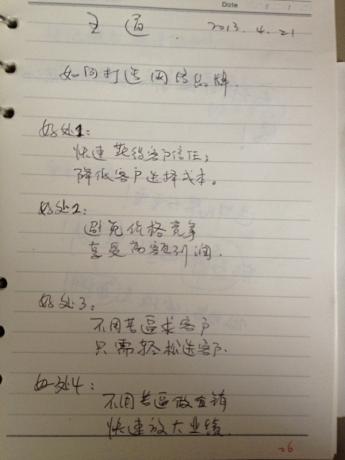 Date
王通 2013.4.21
如何打造网络品牌.
好处1:
快速获得客户信任;
降低客户选择成本。
好处2:
避免价格竞争
享受高额利润.
好处3:
不用苦逼求客户
只需轻松选客户.
好处4:
不用苦逼做直销
快速放大业绩.